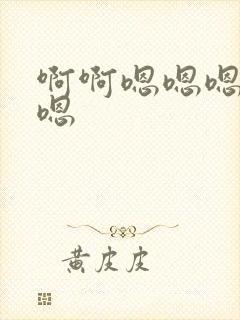 啊啊嗯嗯嗯
嗯
黄皮皮